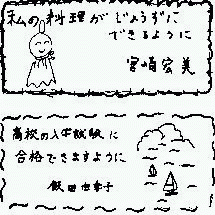 私の料理がじょうずに
できるように
宮崎宏美
高校の入学試験に
合格できますように
飯田由幸子